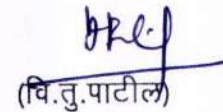 (वि.तु.पाटील)